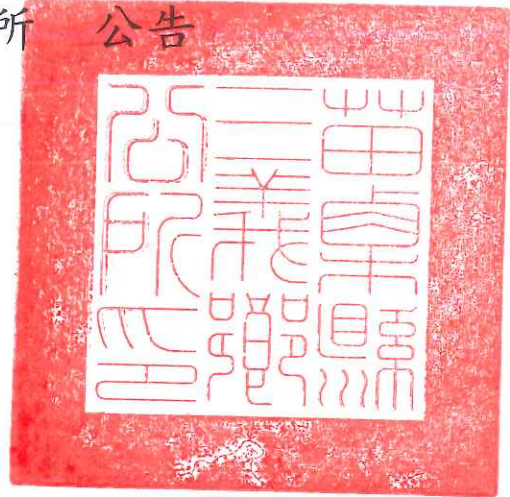 所 公告
苗栗縣
三義鄉
公所印